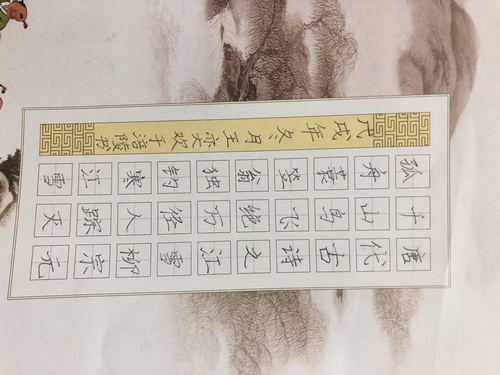 唐代古诗文江雪柳宗元
千山鸟飞绝万径人踪灭
孤舟蓑笠翁独钓寒江雪
戊戌年冬月王亦欢于涪陵书